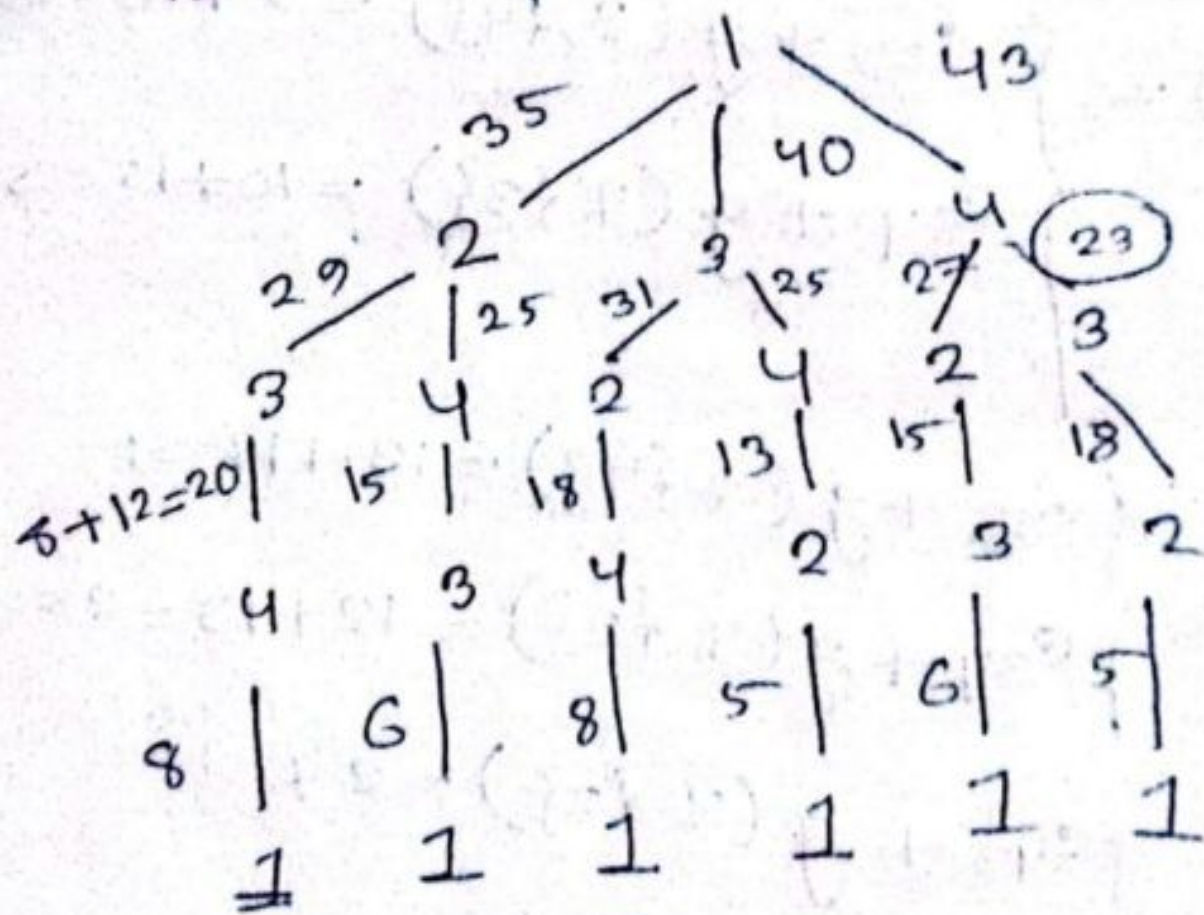 1
35 40 43
2 3 4 23
29 25 31 25 27
3 4 2 4 2 3
8+12=20 15 18 13 15 18
4 3 4 2 3 2
8 6 8 5 6 5
1 1 1 1 1 1